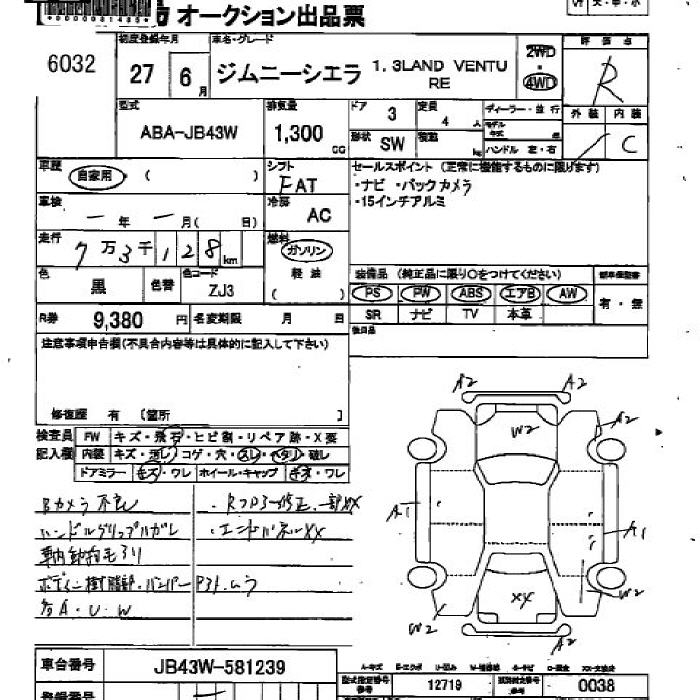 オークション出品票
6032
初度登録年月
27 6月
車名・グレード
ジムニーシエラ
1.3LAND VENTU
RE
2WD
・
4WD
評価点
R
外装 内装
C
型式
ABA-JB43W
排気量
1,300
CC
ドア 3
定員 4 人
形状 SW
積載 kg
ディーラー・並行
モデル年式 年
ハンドル 左・右
車歴
自家用 ( )
シフト
FAT
セールスポイント (正常に機能するものに限ります)
・ナビ ・バックカメラ
・15インチアルミ
車検
ー 年 ー 月( 日)
冷房
AC
走行
7万3千128km
燃料
ガソリン
軽油
( )
色
黒
色替
色コード
ZJ3
装備品 (純正品に限り○をつけてください)
PS PW ABS エアB AW
SR ナビ TV 本革
新車保証書
有・無
R券 9,380 円
名変期限 月 日
後日品
注意事項申告欄(不具合内容等は具体的に記入して下さい)
修復歴 有 [箇所 ]
検査員
記入欄
FW キズ・飛石・ヒビ割・リペア跡・X要
内装 キズ・汚レ・コゲ・穴・スレ・ヘタリ・破レ
ドアミラー キズ・ワレ ホイール・キャップ キズ・ワレ
Bカメラ不良
ハンドルグリップハガレ
車内動物毛アリ
・エンドパネルXX
キズA・U・W
A2 A2
W2
A2
A1
A1
XX
W2
W2
A2
車台番号 JB43W-581239
A-キズ E-エクボ U-凹み W-補修跡 S-サビ C-腐食 XX-交換済
型式指定番号 12719
類別区分番号 0038
登録番号